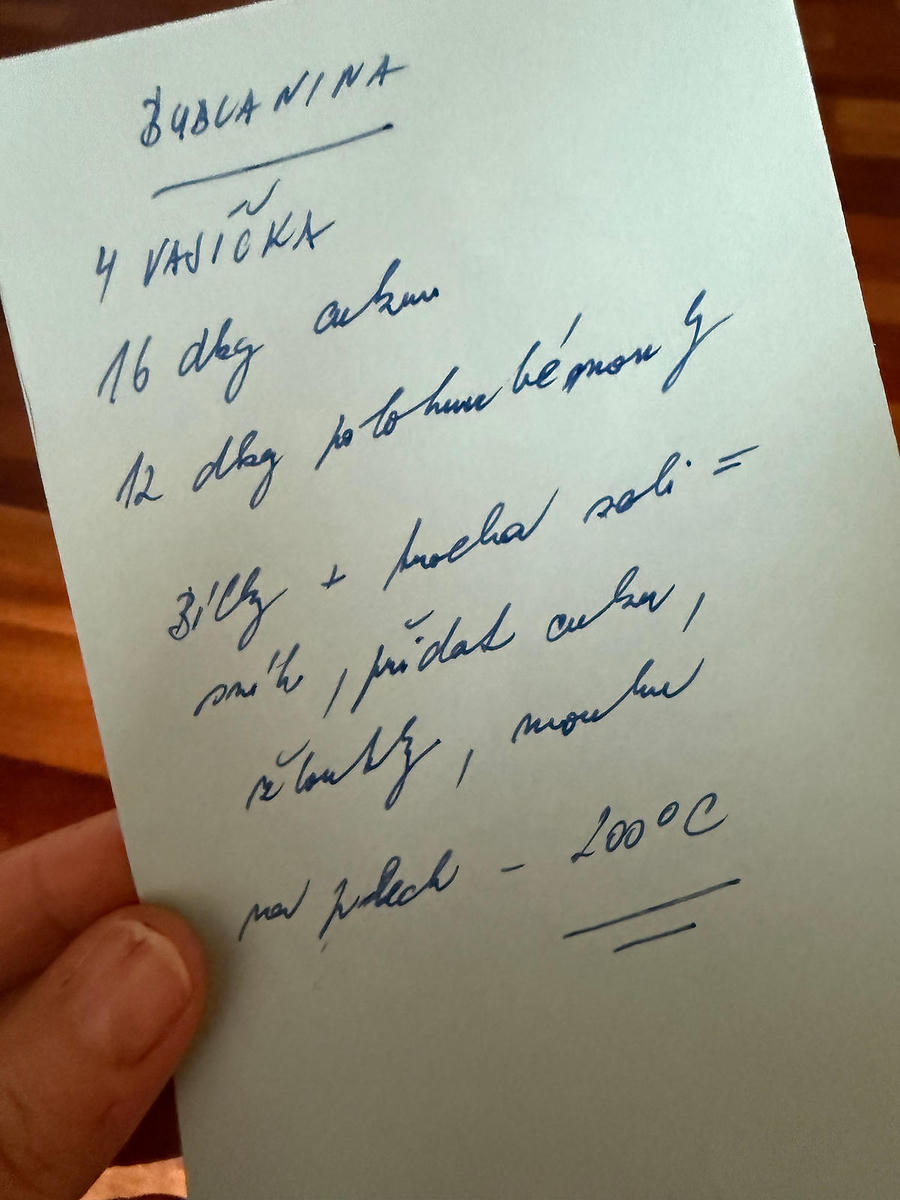 BUBLANINA
4 VAJÍČKA
16 dkg cukru
12 dkg polohrubé mouky
Bílky + trocha soli =
sníh, přidat cukr,
žloutky, mouku
na plech - 200°C